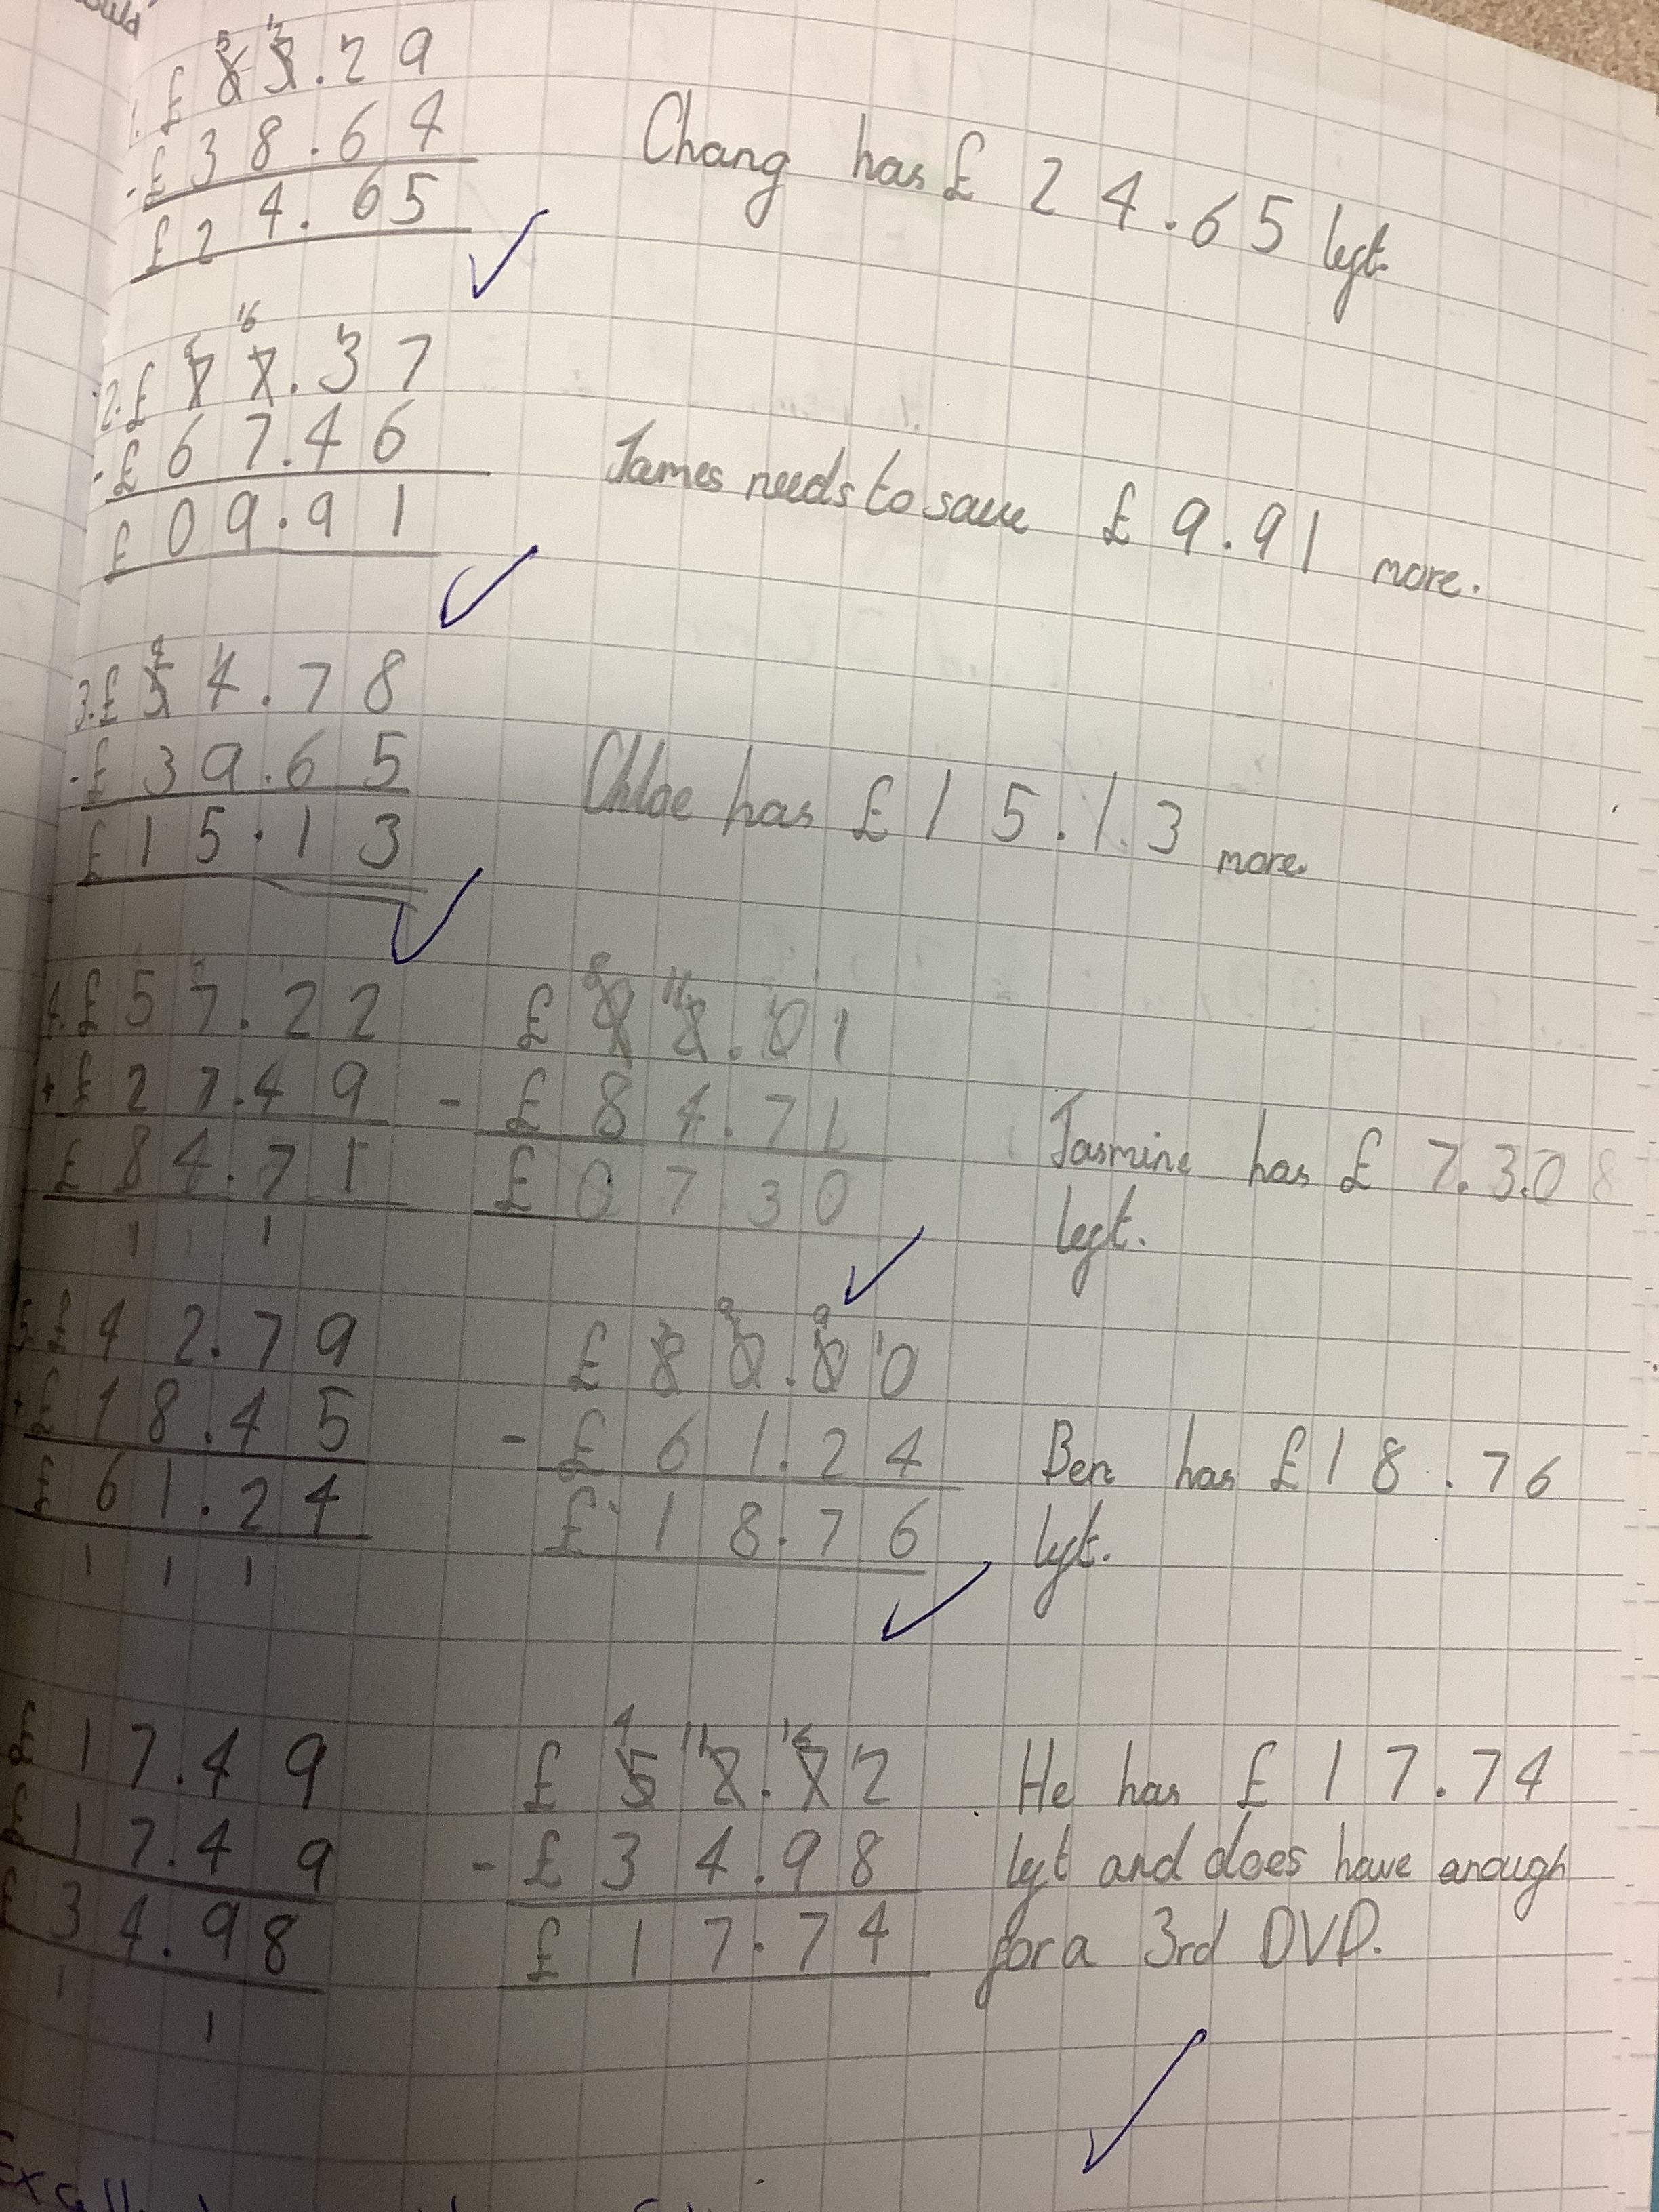 ould
1. £ 63.29
- £ 38.64
£ 24.65
Chang has £ 24.65 left.
2. £ 77.37
- £ 67.46
£ 09.91
James needs to save £ 9.91 more.
3. £ 54.78
- £ 39.65
£ 15.13
Chloe has £ 15.13 more.
4. £ 57.22
+ £ 27.49
£ 84.71
1 1 1
£ 92.01
- £ 84.71
£ 07.30
Jasmine has £ 7.30
left.
5. £ 42.79
+ £ 18.45
£ 61.24
1 1 1
£ 80.00
- £ 61.24
£ 18.76
Ben has £ 18.76
left.
£ 17.49
£ 17.49
£ 34.98
1
1
£ 52.72
- £ 34.98
£ 17.74
He has £ 17.74
left and does have enough
for a 3rd DVD.